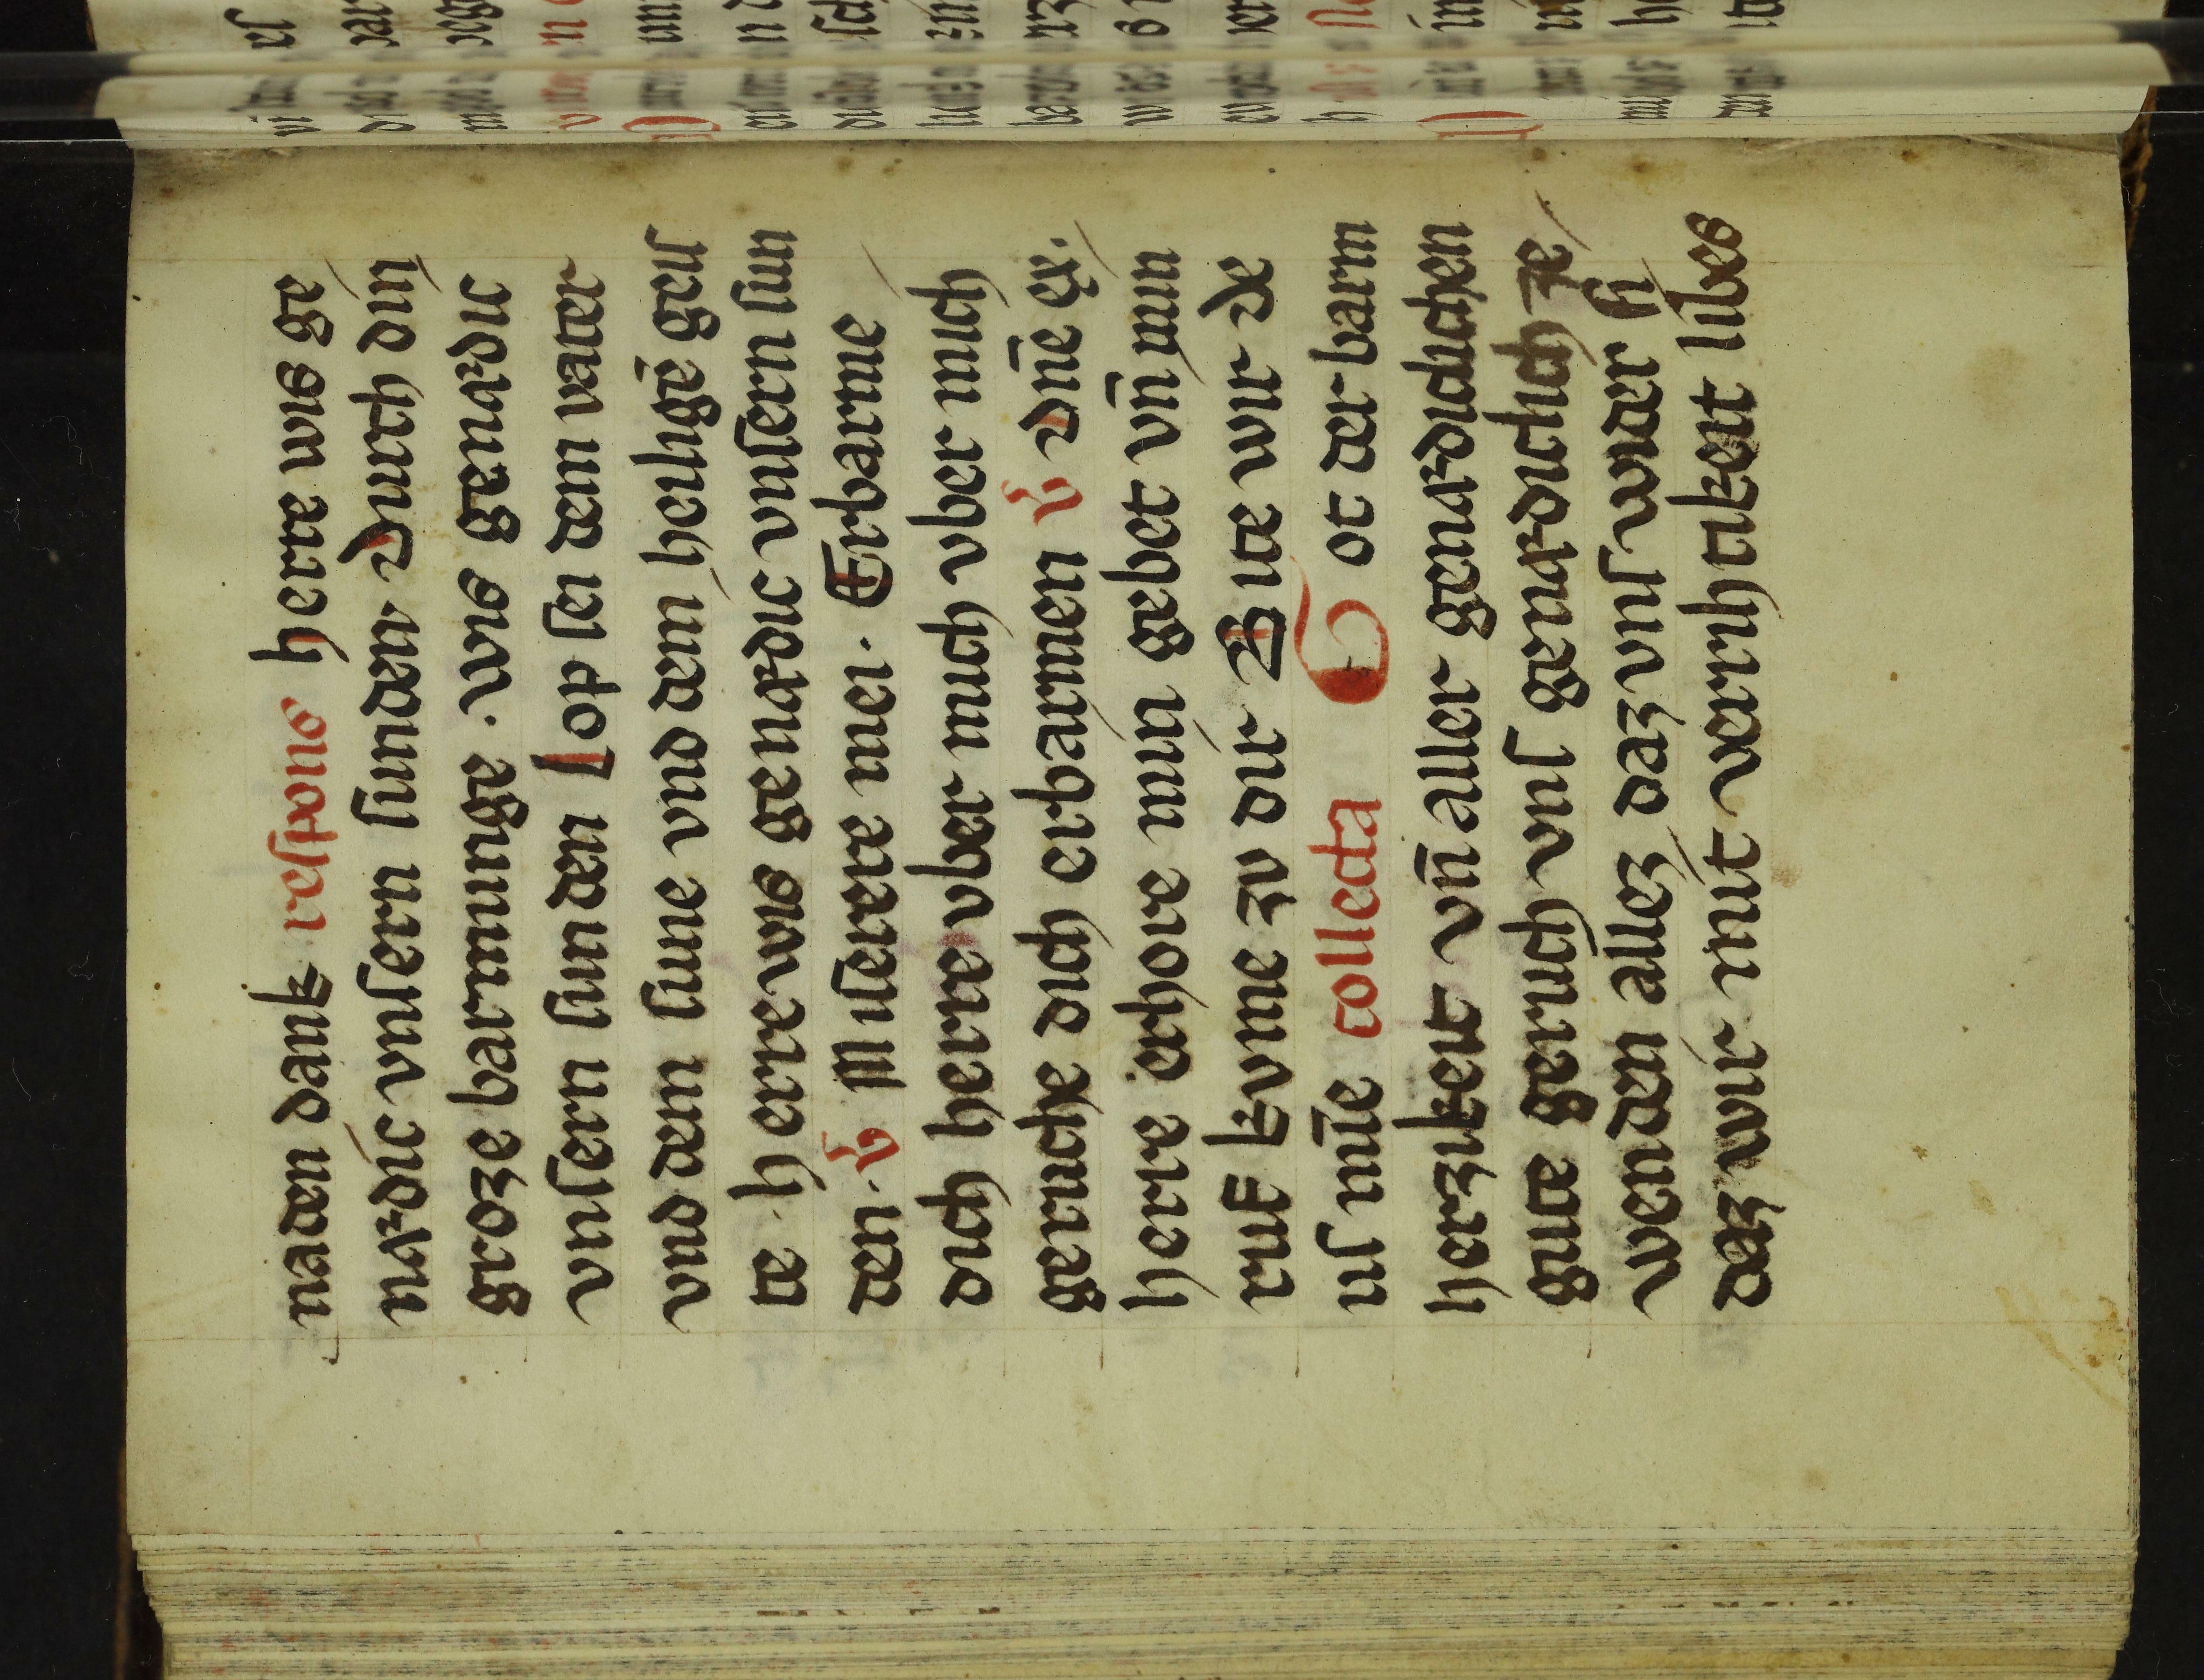 naden dank respons herre wis ge
nædic vnsern sunden Durch din
groze barmunge. wis genædic
vnsern sunden Lop sei dem vater
vnd dem sune vnd dem heiligē geis
te. herre wis genædic vnsern sun
den. v̉ Miserere mei. Erbarme
dich herre vber mich vber mich
geruche dich erbarmen v̉ Dn̄e ex.
herre erhore min gebet vn̄ min
ruf kvme zv dir Bite wir de
us mīe collecta Got der barm
herzikeit vn̄ aller genædichen
gute geruch vns genædiclich ze
wenden allez daz vns wider si
daz wir mit verihtikeit libes